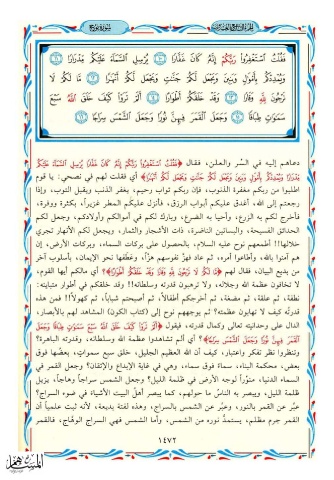 فَقُلْتُ اسْتَغْفِرُوا رَبَّكُمْ إِنَّهُ كَانَ غَفَّارًا ١٠ يُرْسِلِ السَّمَاءَ عَلَيْكُمْ مِدْرَارًا ١١
وَيُمْدِدْكُمْ بِأَمْوَالٍ وَبَنِينَ وَيَجْعَلْ لَكُمْ جَنَّاتٍ وَيَجْعَلْ لَكُمْ أَنْهَارًا ١٢ مَا لَكُمْ لَا
تَرْجُونَ لِلَّهِ وَقَارًا ١٣ وَقَدْ خَلَقَكُمْ أَطْوَارًا ١٤ أَلَمْ تَرَوْا كَيْفَ خَلَقَ اللَّهُ سَبْعَ
سَمَاوَاتٍ طِبَاقًا ١٥ وَجَعَلَ الْقَمَرَ فِيهِنَّ نُورًا وَجَعَلَ الشَّمْسَ سِرَاجًا ١٦
دعاهم إليه في السر والعلن، فقال ﴿فَقُلْتُ اسْتَغْفِرُوا رَبَّكُمْ إِنَّهُ كَانَ غَفَّارًا يُرْسِلِ السَّمَاءَ عَلَيْكُمْ
مِدْرَارًا وَيُمْدِدْكُمْ بِأَمْوَالٍ وَبَنِينَ وَيَجْعَلْ لَكُمْ جَنَّاتٍ وَيَجْعَلْ لَكُمْ أَنْهَارًا﴾ أي فقلت لهم في نصحي: يا قوم
اطلبوا من ربكم مغفرة الذنوب، فإن ربكم تواب رحيم، يغفر الذنب ويقبل التوب، وإذا
رجعتم إلى الله، أغدق عليكم أبواب الرزق، فأنزل عليكم المطر غزيراً، بكثرة ووفرة،
فأخرج لكم به الزرع، وأحيا به الضرع، وبارك لكم في أموالكم وأولادكم، وجعل لكم
الحدائق الفسيحة، والبساتين الناضرة، ذات الأشجار والثمار، ويجعل لكم الأنهار تجري
خلالها!! أطمعهم نوح عليه السلام، بالحصول على بركات السماء، وبركات الأرض، إن
هم آمنوا بالله، وأطاعوا أمره، ثم عاد فهزّ نفوسهم هزّاً، وعَطَفها نحو الإيمان، بأسلوب آخر
من بديع البيان، فقال لهم ﴿مَا لَكُمْ لَا تَرْجُونَ لِلَّهِ وَقَارًا وَقَدْ خَلَقَكُمْ أَطْوَارًا﴾؟ أي مالكم أيها القوم،
لا تخافون عظمة الله وجلاله، ولا ترهبون قدرته وسلطانه!! وقد خلقكم في أطوار متباينة:
نطفة، ثم علقة، ثم مضغة، ثم أخرجكم أطفالاً، ثم أصبحتم شباباً، ثم كهولاً!! فمن هذه
قدرتُه كيف لا تهابون عظمته؟ ثم يوجههم نوح إلى (كتاب الكون) المشاهد لهم بالأبصار،
الدال على وحدانيته تعالى وكمال قدرته، فيقول ﴿أَلَمْ تَرَوْا كَيْفَ خَلَقَ اللَّهُ سَبْعَ سَمَاوَاتٍ طِبَاقًا وَجَعَلَ
الْقَمَرَ فِيهِنَّ نُورًا وَجَعَلَ الشَّمْسَ سِرَاجًا﴾؟ أي ألم تشاهدوا عظمة الله وسلطانه، وقدرته الباهرة؟
وتنظروا نظر تفكر واعتبار، كيف أن الله العظيم الجليل، خلق سبع سمواتٍ، بعضُها فوق
بعض، محكمة البناء، سماءً فوق سماء، وهي في غاية الإبداع والإتقان؟ وجعل القمر في
السماء الدنيا، منوّراً لوجه الأرض في ظلمة الليل؟ وجعل الشمس سراجاً وهاجاً، يزيل
ظلمة الليل، ويبصر به الناسُ ما حولهم، كما يبصر أهل البيت الأشياء في ضوء السراج؟
عبَّر عن القمر بالنور، وعبَّر عن الشمس بالسراج، وهذه لفتة بديعة، لأنه ثبت علمياً أن
القمر جرم مظلم، يستمدُّ نوره من الشمس، وأما الشمس فهي السراج الوهّاج، فالقمر
١٤٧٢